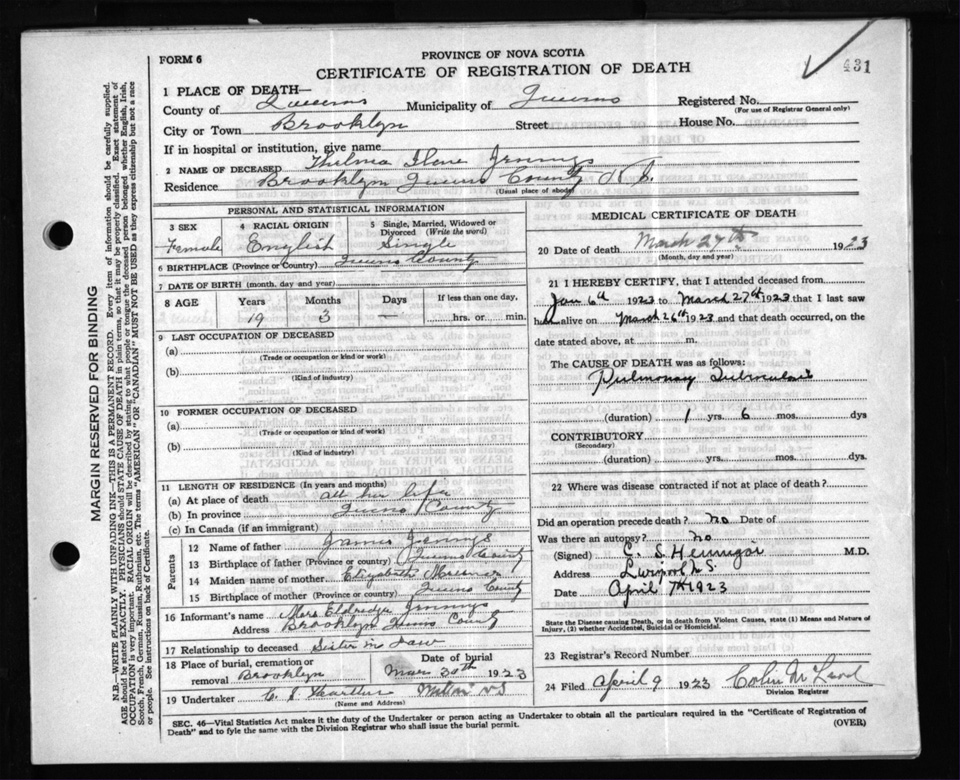 FORM 6
PROVINCE OF NOVA SCOTIA
CERTIFICATE OF REGISTRATION OF DEATH
431
1 PLACE OF DEATH—
County of Queens Municipality of Queens Registered No.
(For use of Registrar General only)
City or Town Brooklyn Street House No.
If in hospital or institution, give name
2 NAME OF DECEASED Thelma Ilene Jennings
Residence Brooklyn Queens County N.S.
(Usual place of abode)
PERSONAL AND STATISTICAL INFORMATION
3 SEX 4 RACIAL ORIGIN 5 Single, Married, Widowed or Divorced (Write the word)
Female English Single
6 BIRTHPLACE (Province or Country) Queens County
7 DATE OF BIRTH (month, day and year)
8 AGE Years Months Days If less than one day,
19 3 — hrs. or min.
9 LAST OCCUPATION OF DECEASED
(a)
(Trade or occupation or kind or work)
(b)
(Kind of industry)
10 FORMER OCCUPATION OF DECEASED
(a)
(Trade or occupation or kind of work)
(b)
(Kind of industry)
11 LENGTH OF RESIDENCE (In years and months)
(a) At place of death all her life
(b) In province Queens County
(c) In Canada (if an immigrant)
Parents
12 Name of father James Jennings
13 Birthplace of father (Province or country) Queens County
14 Maiden name of mother Elizabeth
15 Birthplace of mother (Province or country) Queens County
16 Informant's name Mrs Eldredge Jennings
Address Brooklyn Queens County
17 Relationship to deceased Sister in Law
18 Place of burial, cremation or removal Brooklyn
Date of burial Mar 30th 1923
19 Undertaker C. S. Milton N S
(Name and Address)
MEDICAL CERTIFICATE OF DEATH
20 Date of death March 27th 1923
(Month, day and year)
21 I HEREBY CERTIFY, that I attended deceased from
Jan 6th 1923 to March 27th 1923 that I last saw
her alive on March 26th 1923 and that death occurred, on the
date stated above, at m.
The CAUSE OF DEATH was as follows:
Pulmonary Tuberculosis
(duration) 1 yrs. 6 mos. dys
CONTRIBUTORY
(Secondary)
(duration) yrs. mos. dys.
22 Where was disease contracted if not at place of death?
Did an operation precede death? no Date of
Was there an autopsy? no
(Signed) C. S. Hennigar M.D.
Address Liverpool N S.
Date April 7th 1923
State the Disease causing Death, or in death from Violent Causes, state (1) Means and Nature of
Injury, (2) whether Accidental, Suicidal or Homicidal.
23 Registrar's Record Number
24 Filed April 9 1923 Colin McLeod
Division Registrar
SEC. 46—Vital Statistics Act makes it the duty of the Undertaker or person acting as Undertaker to obtain all the particulars required in the "Certificate of Registration of
Death" and to fyle the same with the Division Registrar who shall issue the burial permit. (OVER)
MARGIN RESERVED FOR BINDING
N.B.—WRITE PLAINLY WITH UNFADING INK—THIS IS A PERMANENT RECORD. Every item of information should be carefully supplied.
AGE should be stated EXACTLY. PHYSICIANS should STATE CAUSE OF DEATH in plain terms, so that it may be properly classified. Exact statement of
OCCUPATION is very important. RACIAL ORIGIN will be described by stating to what people or tongue the deceased person belonged whether English, Irish,
Scotch, French, German, Russian, Ruthenian, etc. The terms "AMERICAN" OR "CANADIAN" MUST NOT BE USED as they express citizenship but not a race
or people. See instructions on back of Certificate.